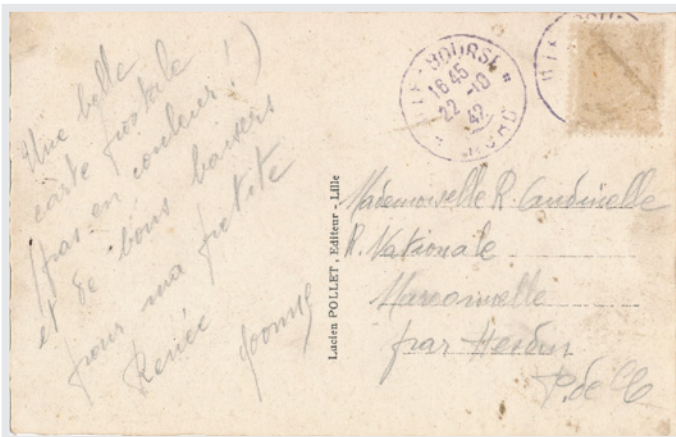 Une belle
carte postale
(pas en couleur !)
et de bons baisers
pour ma petite
Renée
Yvonne
Lucien POLLET, Editeur - Lille
BOURSE
16 45
22 -10
42
NORD
Mademoiselle R.
R. Nationale
par Hesdin
P. de C